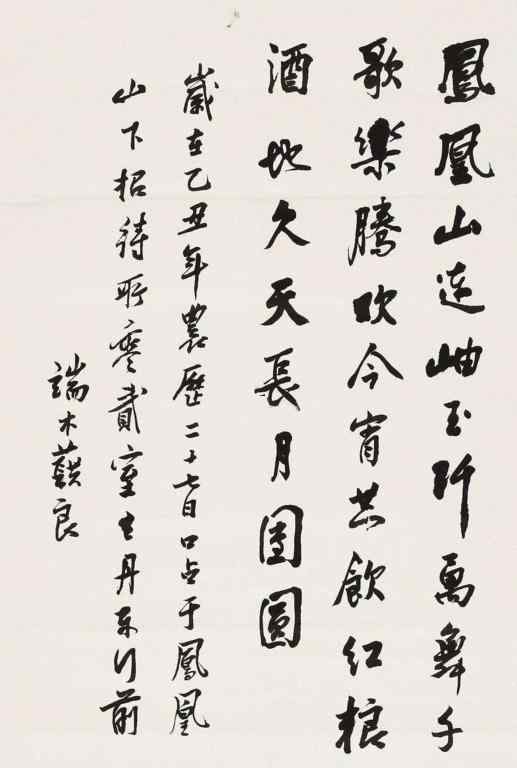 鳳凰山连岫玉阡萬舞千
歌樂騰欢今宵共飲红粮
酒地久天長月团圓
歲在乙丑年農歷二十七日口占于鳳凰
山下招待所零貳室去丹东行前
端木蕻良